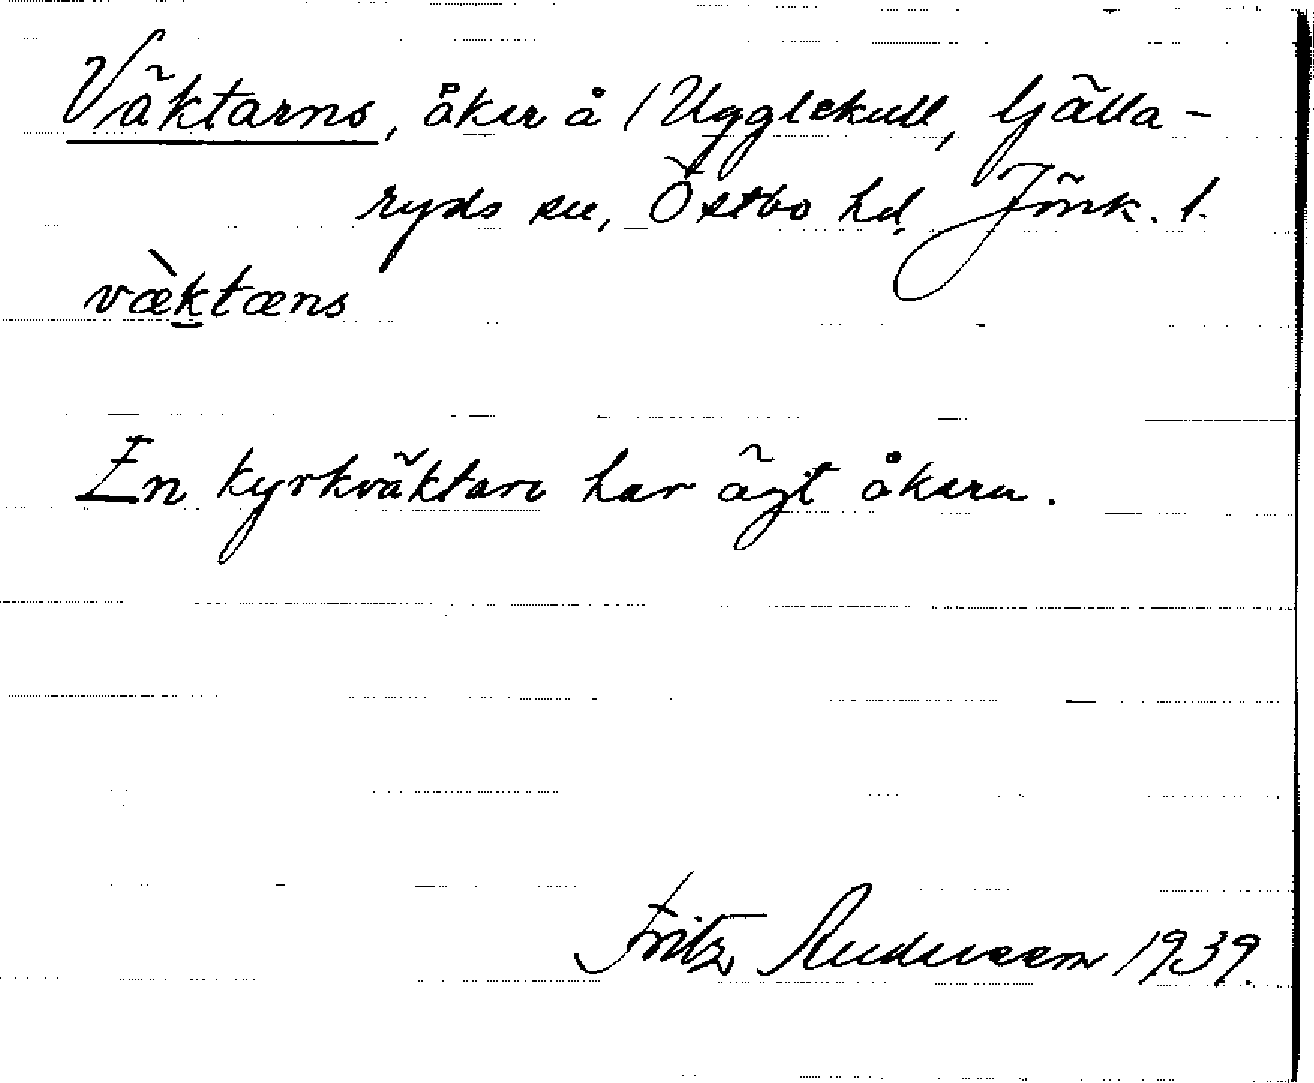 Väktarns, åker å 1 Ugglekull, Gjälla-
ryds sn, Östbo hd, Jönk. l.
væktæns
En kyrkväktare har ägt åkern.
Fritz Andersson 1939.